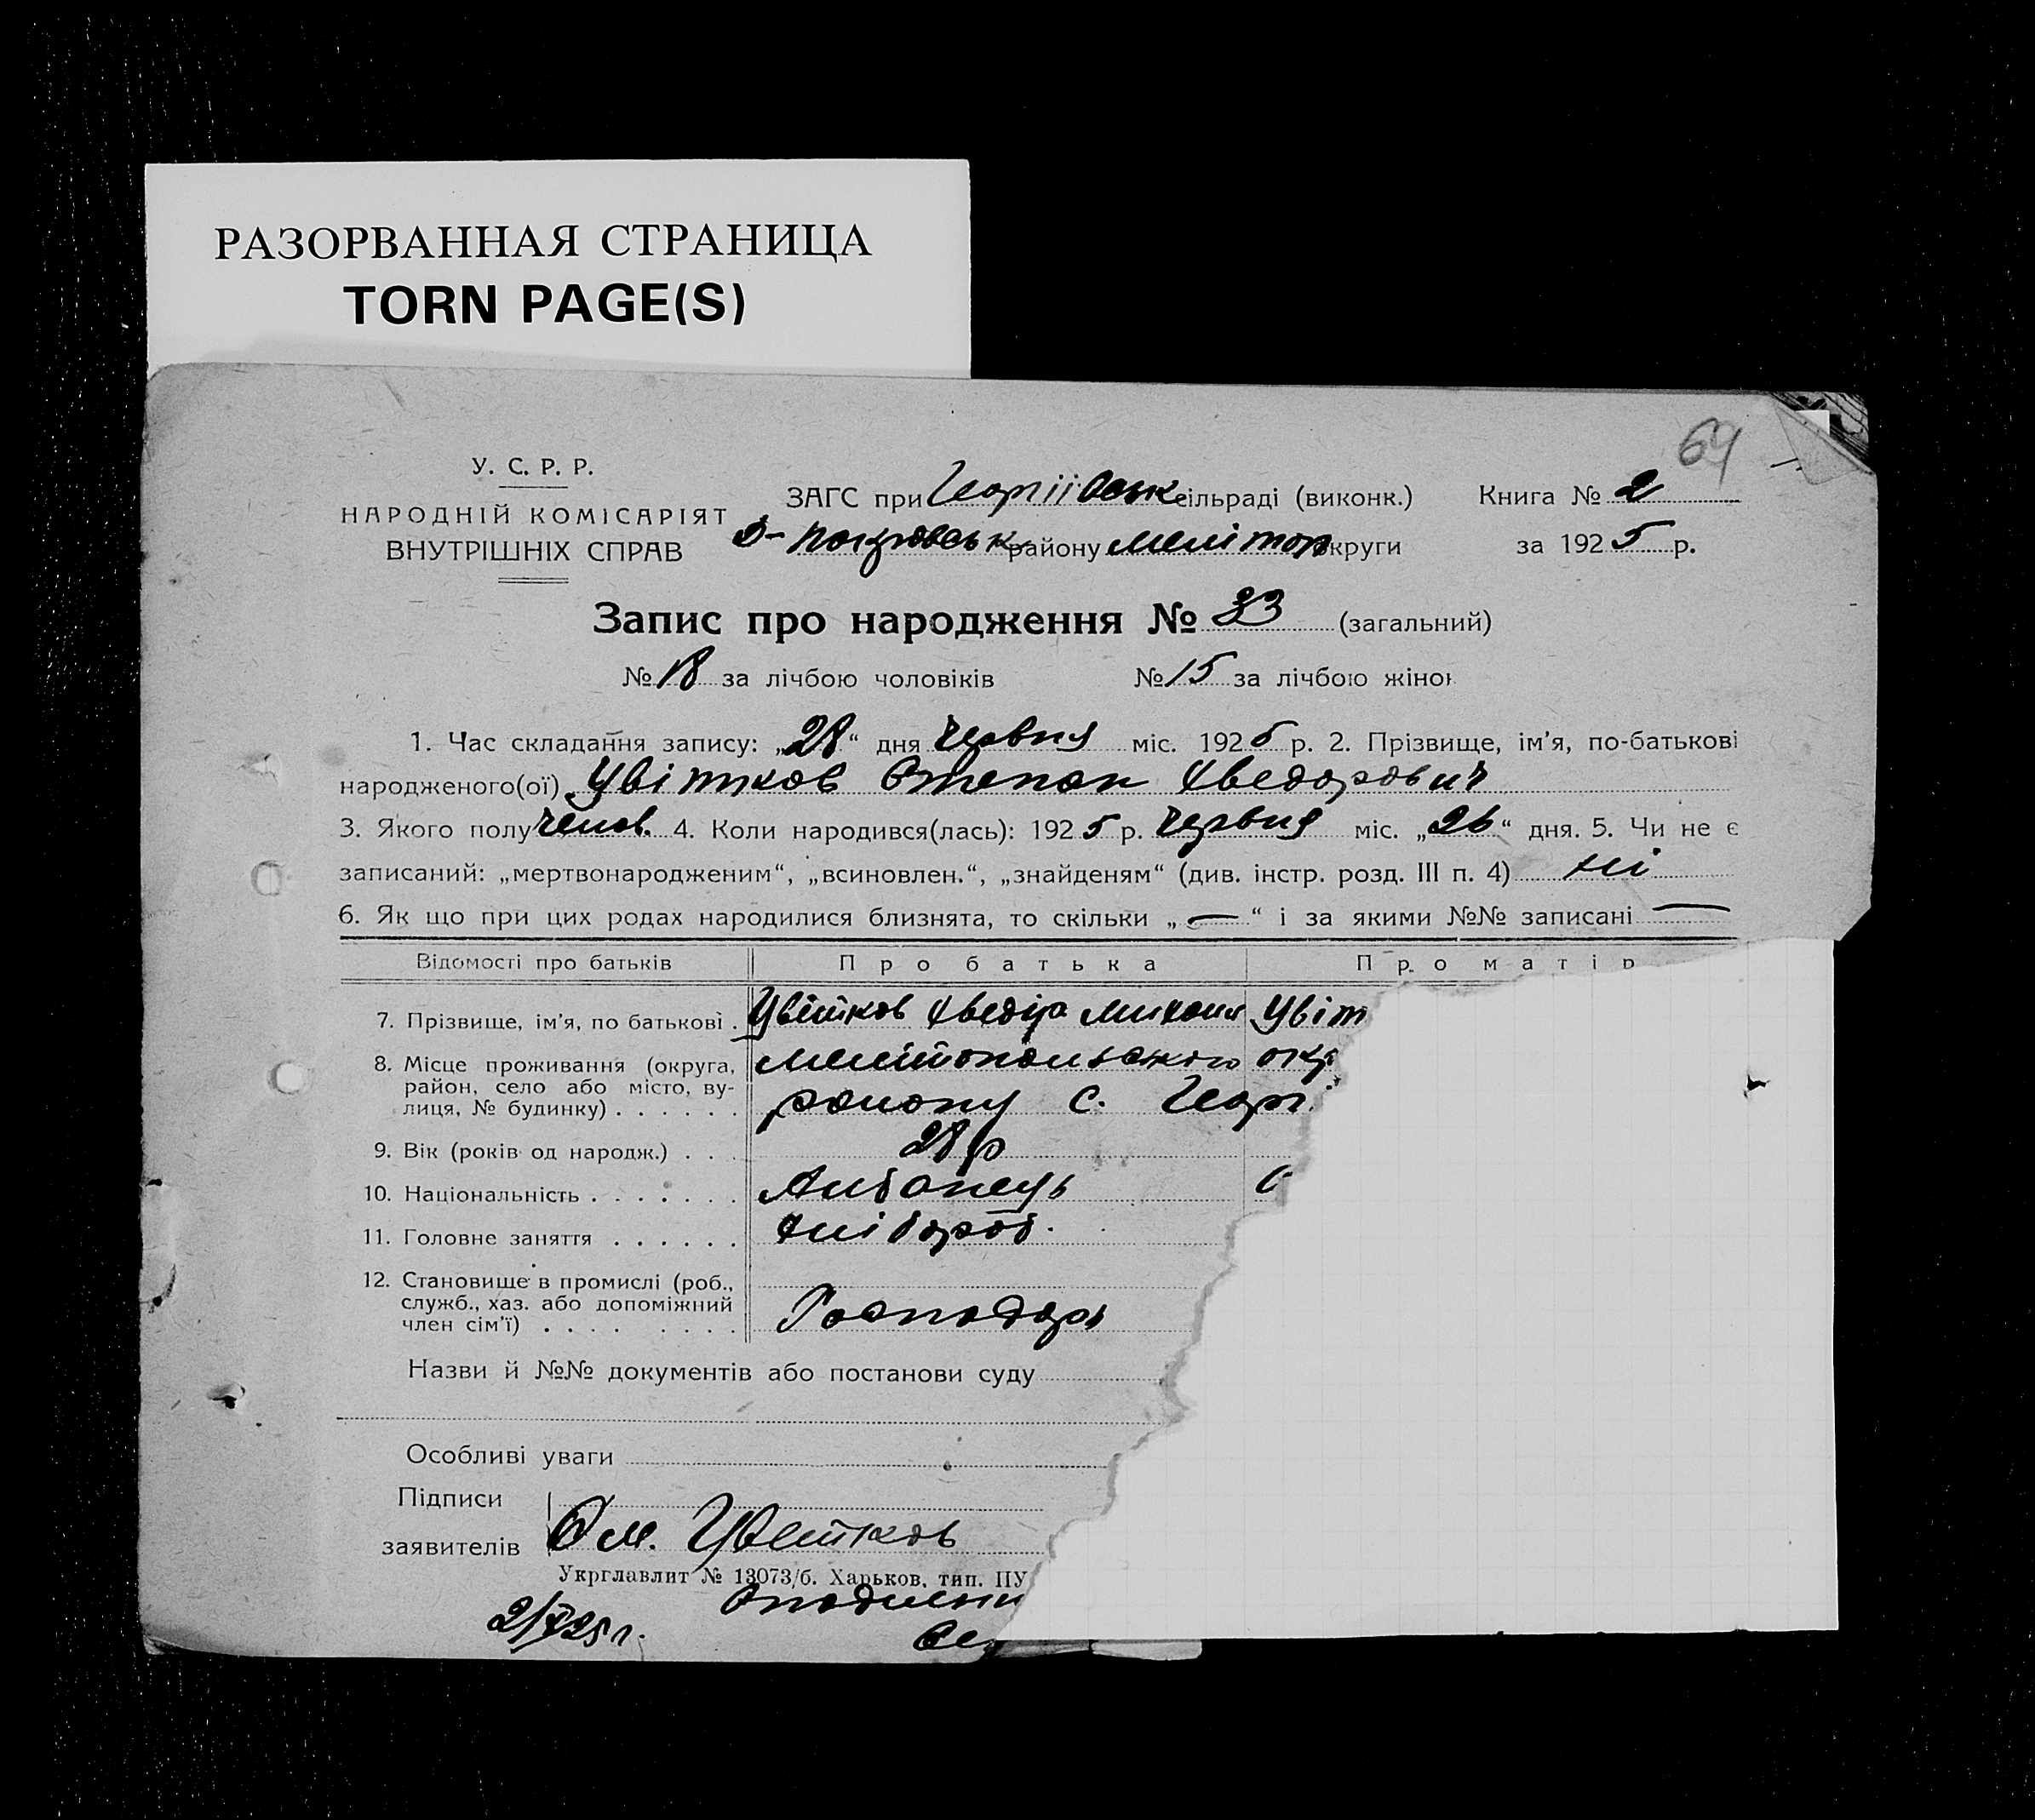 РАЗОРВАННАЯ СТРАНИЦА
TORN PAGE(S)
64
У. С. Р. Р.
НАРОДНІЙ КОМІСАРІЯТ
ВНУТРІШНІХ СПРАВ
ЗАГС при Георгіївськ сільраді (виконк.) Книга № 2
Покровськ району Мелітоп округи за 1925 р.
Запис про народження № 33 (загальний)
№ 18 за лічбою чоловіків № 15 за лічбою жінок
1. Час складання запису: „28“ дня червня міс. 1925 р. 2. Прізвище, ім’я, по-батькові
народженого(ої) Цвітков Степан Хведорович
3. Якого полу чолов. 4. Коли народився(лась): 1925 р. червня міс. „26“ дня. 5. Чи не є
записаний: „мертвонародженим“, „всиновлен.“, „знайденям“ (див. інстр. розд. III п. 4) ні
6. Як що при цих родах народилися близнята, то скільки „—“ і за якими №№ записані —
Відомості про батьків Про батька Про матір
7. Прізвище, ім’я, по батькові . Цвітков Хведір Михайл Цвіт
8. Місце проживання (округа, Мелітопольського окр
район, село або місто, ву-
лиця, № будинку) . . . . . . району с. Георгі
9. Вік (років од народж.) . . . 28 р
10. Національність . . . . . . . Албанець
11. Головне заняття . . . . . . Хлібороб.
12. Становище в промислі (роб.,
служб., хаз. або допоміжний
член сім’ї) . . . . . . . . Господарь
Назви й №№ документів або постанови суду
Особливі уваги
Підписи
заявителів Цветков
Укрглавлит № 13073/б. Харьков, тип. ПУ
2/X 25 г.